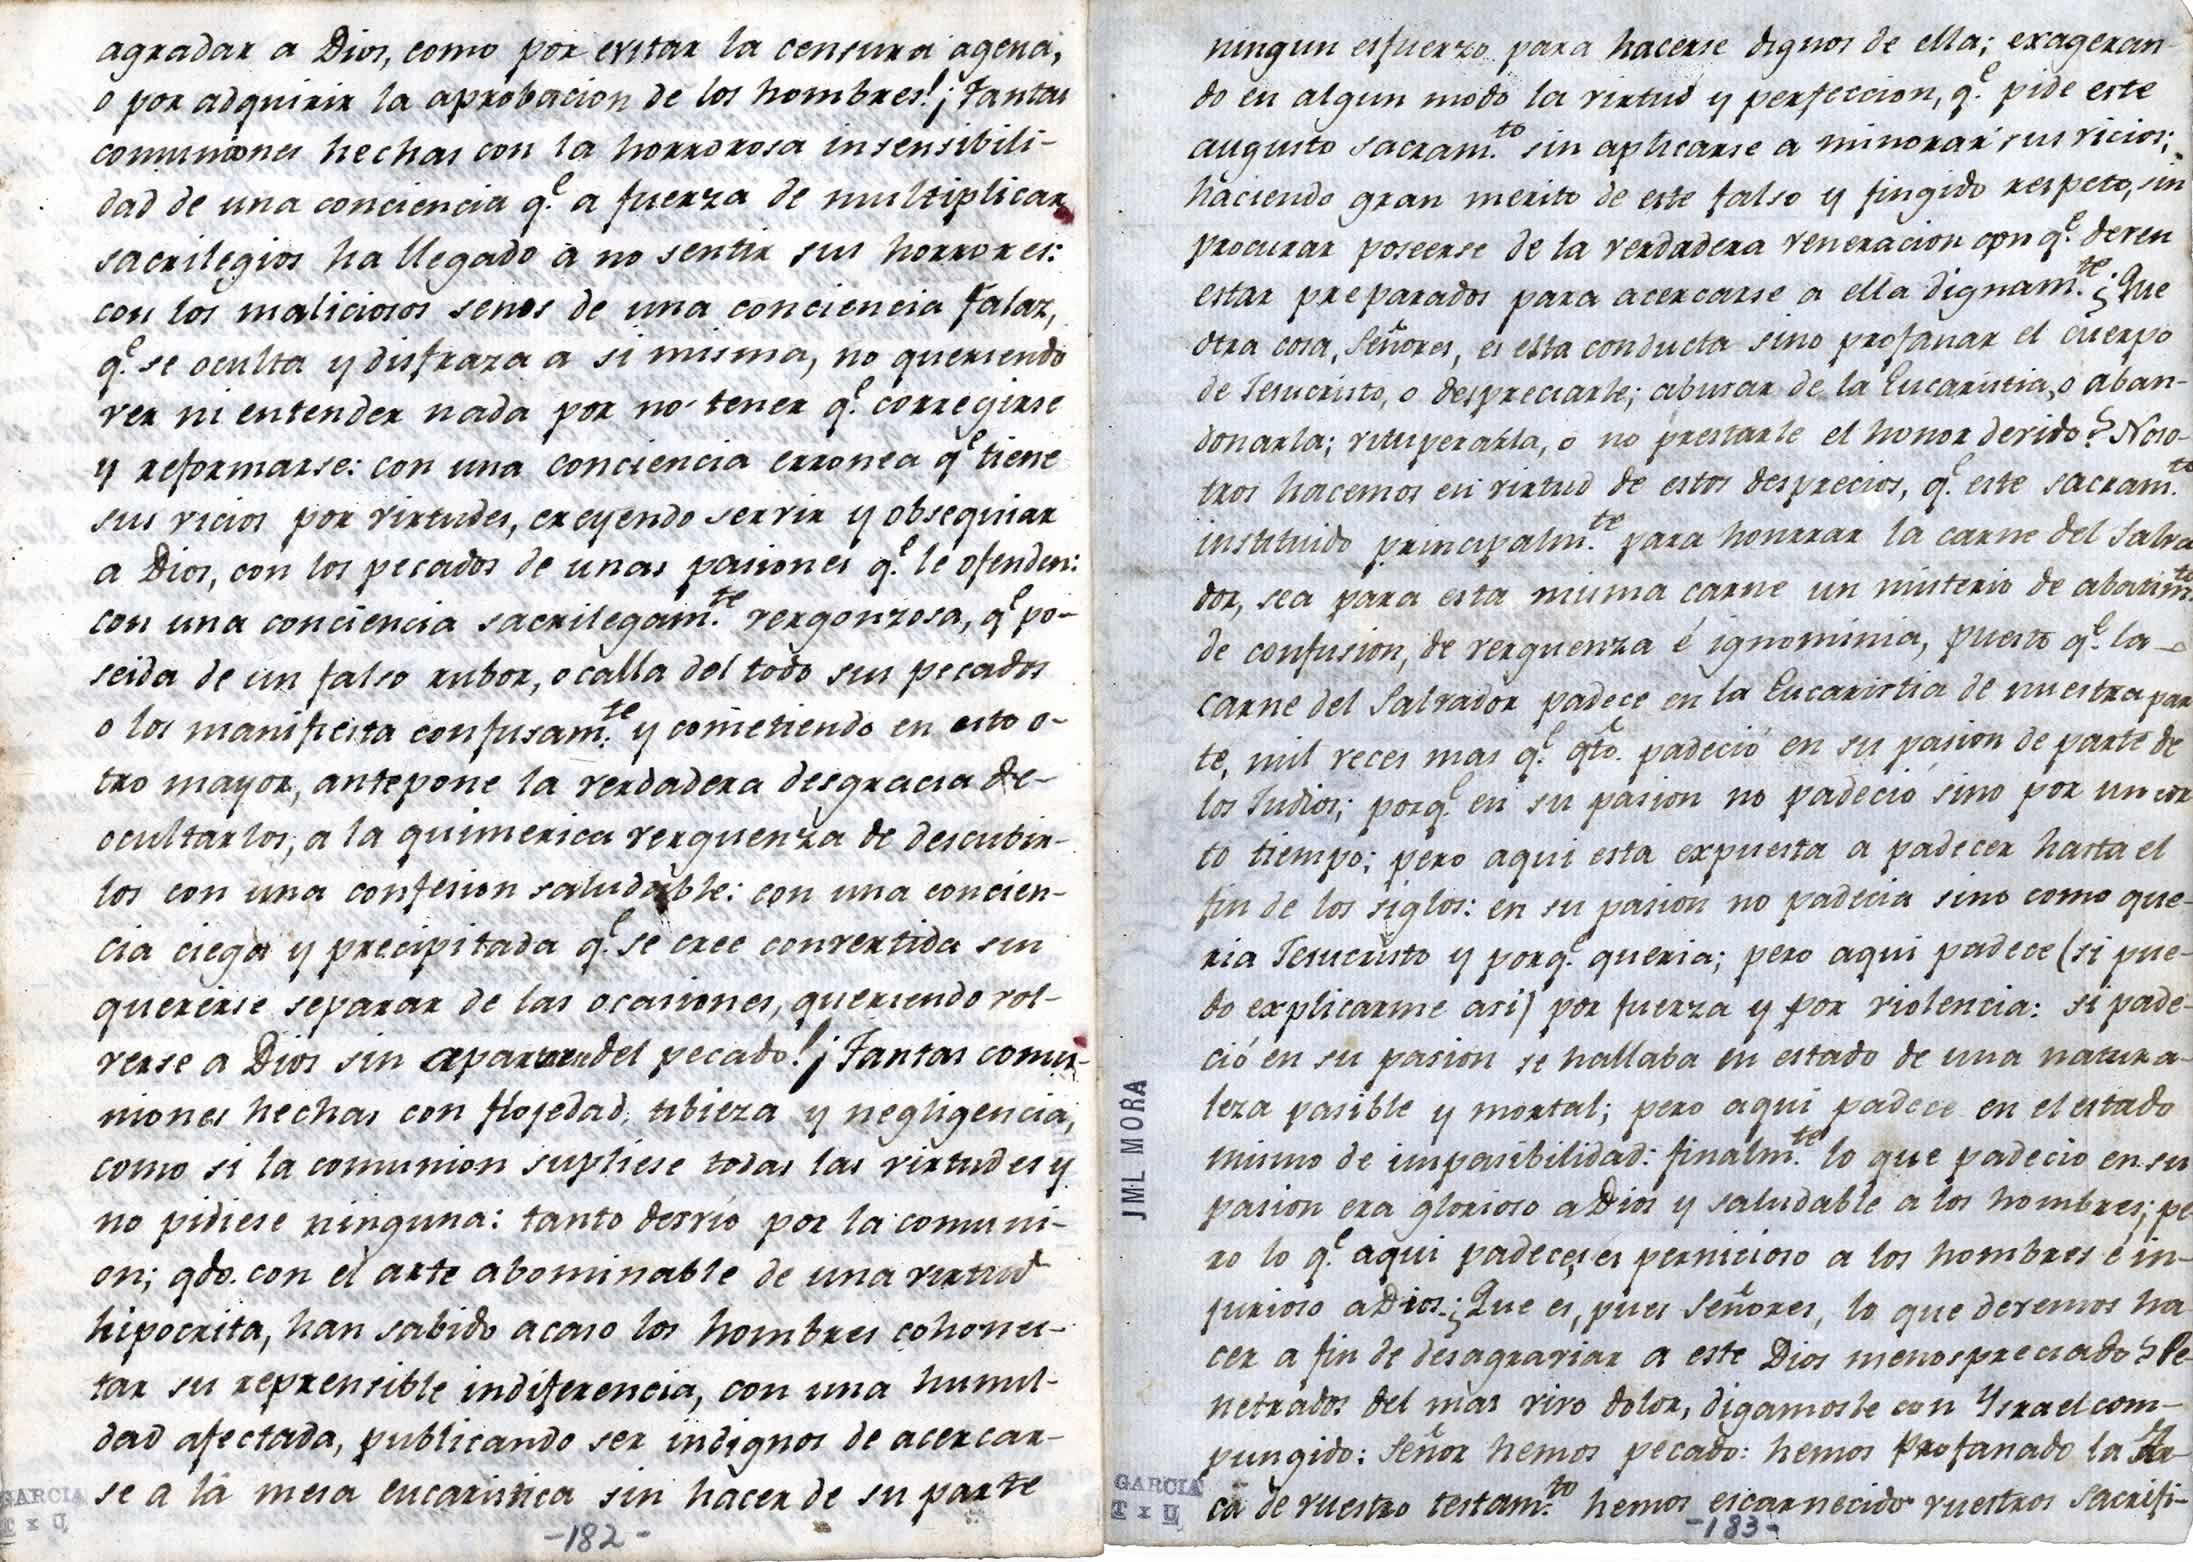 agradar a Dios, como por evitar la censura agena,
o por adquirir la aprobacion de los hombres! ¡Tantas
comuniones hechas con la horrorosa insensibili-
dad de una conciencia q.e a fuerza de multiplicar
sacrilegios ha llegado a no sentir sus horrores:
con los maliciosos senos de una conciencia falaz,
q.e se oculta y disfraza a si misma, no queriendo
ver ni entender nada por no tener q.e corregirse
y reformarse: con una conciencia erronea q.e tiene
sus vicios por virtudes, creyendo servir y obsequiar
a Dios, con los pecados de unas pasiones q.e le ofenden:
con una conciencia sacrilegam.te vergonzosa, q.e po-
seida de un falso rubor, o calla del todo sus pecados
o los manifiesta confusam.te y cometiendo en esto o-
tro mayor, antepone la verdadera desgracia de-
ocultarlos, a la quimerica verguenza de descubir-
los con una confesion saludable: con una concien-
cia ciega y precipitada q.e se cree convertida sin
quererse separar de las ocasiones, queriendo vol-
verse a Dios sin del pecado! ¡Tantas comu-
niones hechas con flojedad, tibieza y negligencia,
como si la comunion supliese todas las virtudes y
no pidiese ninguna: tanto desvio por la comuni-
on; qdo. con el arte abominable de una virtud
hipocrita, han sabido acaso los hombres cohones-
tar su reprensible indiferencia, con una humil-
dad afectada, publicando ser indignos de acercar-
se a la mesa eucaristica sin hacer de su parte
GARCIA
T x U
-182-
ningun esfuerzo para hacerse dignos de ella; exageran-
do en algun modo la virtud y perfeccion, q.e pide este
augusto sacram.to sin aplicarse a minorar sus vicios;
haciendo gran merito de este falso y fingido respeto, sin
procurar poseerse de la verdadera veneracion con q.e deven
estar preparados para acercarse a ella dignam.te ¿Que
otra cosa, Señores, es esta conducta sino profanar el cuerpo
de Jesucristo, o despreciarle; abusar de la Eucaristia, o aban-
donarla; vituperarla, o no prestarle el honor devido? Noso-
tros hacemos en virtud de estos desprecios, q.e este sacram.to
instituido principalm.te para honrrar la carne del Salva
dor, sea para esta misma carne un misterio de abatim.to
de confusion, de verguenza é ignominia, puesto q.e la -
carne del Salvador padece en la Eucaristia de nuestra par
te, mil veces mas q.e qto. padeció en su pasion de parte de
los Judios; porq.e en su pasion no padeció sino por un cor
to tiempo; pero aqui esta expuesta a padecer hasta el
fin de los siglos: en su pasion no padecia sino como que-
ria Jesucristo y porq.e queria; pero aqui padece (si pue-
do explicarme asi) por fuerza y por violencia: si pade-
ció en su pasion se hallaba en estado de una natura-
leza pasible y mortal; pero aqui padece en el estado
mismo de impasibilidad: finalm.te lo que padeció en su
pasion era glorioso a Dios y saludable a los hombres; pe
ro lo q.e aqui padece, es pernicioso a los hombres é in-
jurioso a Dios. ¿Que es, pues Señores, lo que devemos ha
cer a fin de desagraviar a este Dios menospreciado? Pe-
netrados del mas vivo dolor, digamosle con Ysrael com-
pungido: Señor hemos pecado: hemos profanado la Ar-
ca de vuestro testam.to hemos escarnecido vuestros sacrifi-
JML MORA
GARCIA
T x U
-183-